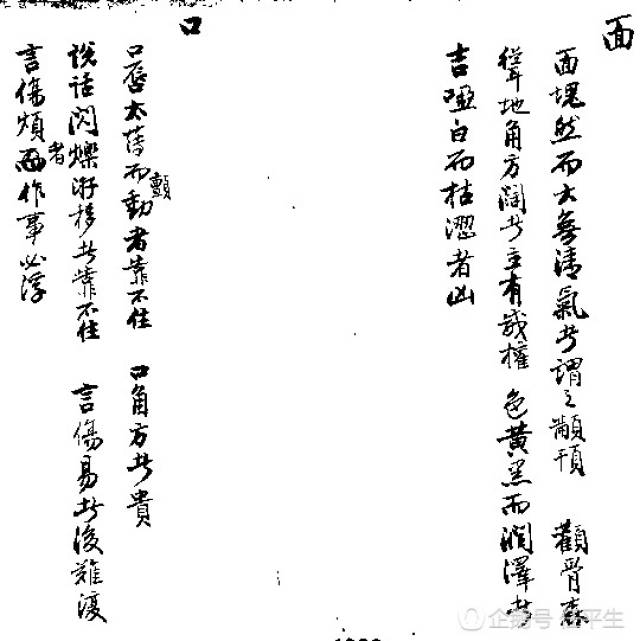 面
面塊然而大無清氣者謂之顢頇　顴骨森
聳地角方闊者主有威權　色黃黑而潤澤者
吉啞白而枯澀者凶
口
口唇太薄而顫動者靠不住　口角方者貴
說話閃爍游移者靠不住　言傷易者後難復
言傷煩者而作事必浮
企鹅号
平生